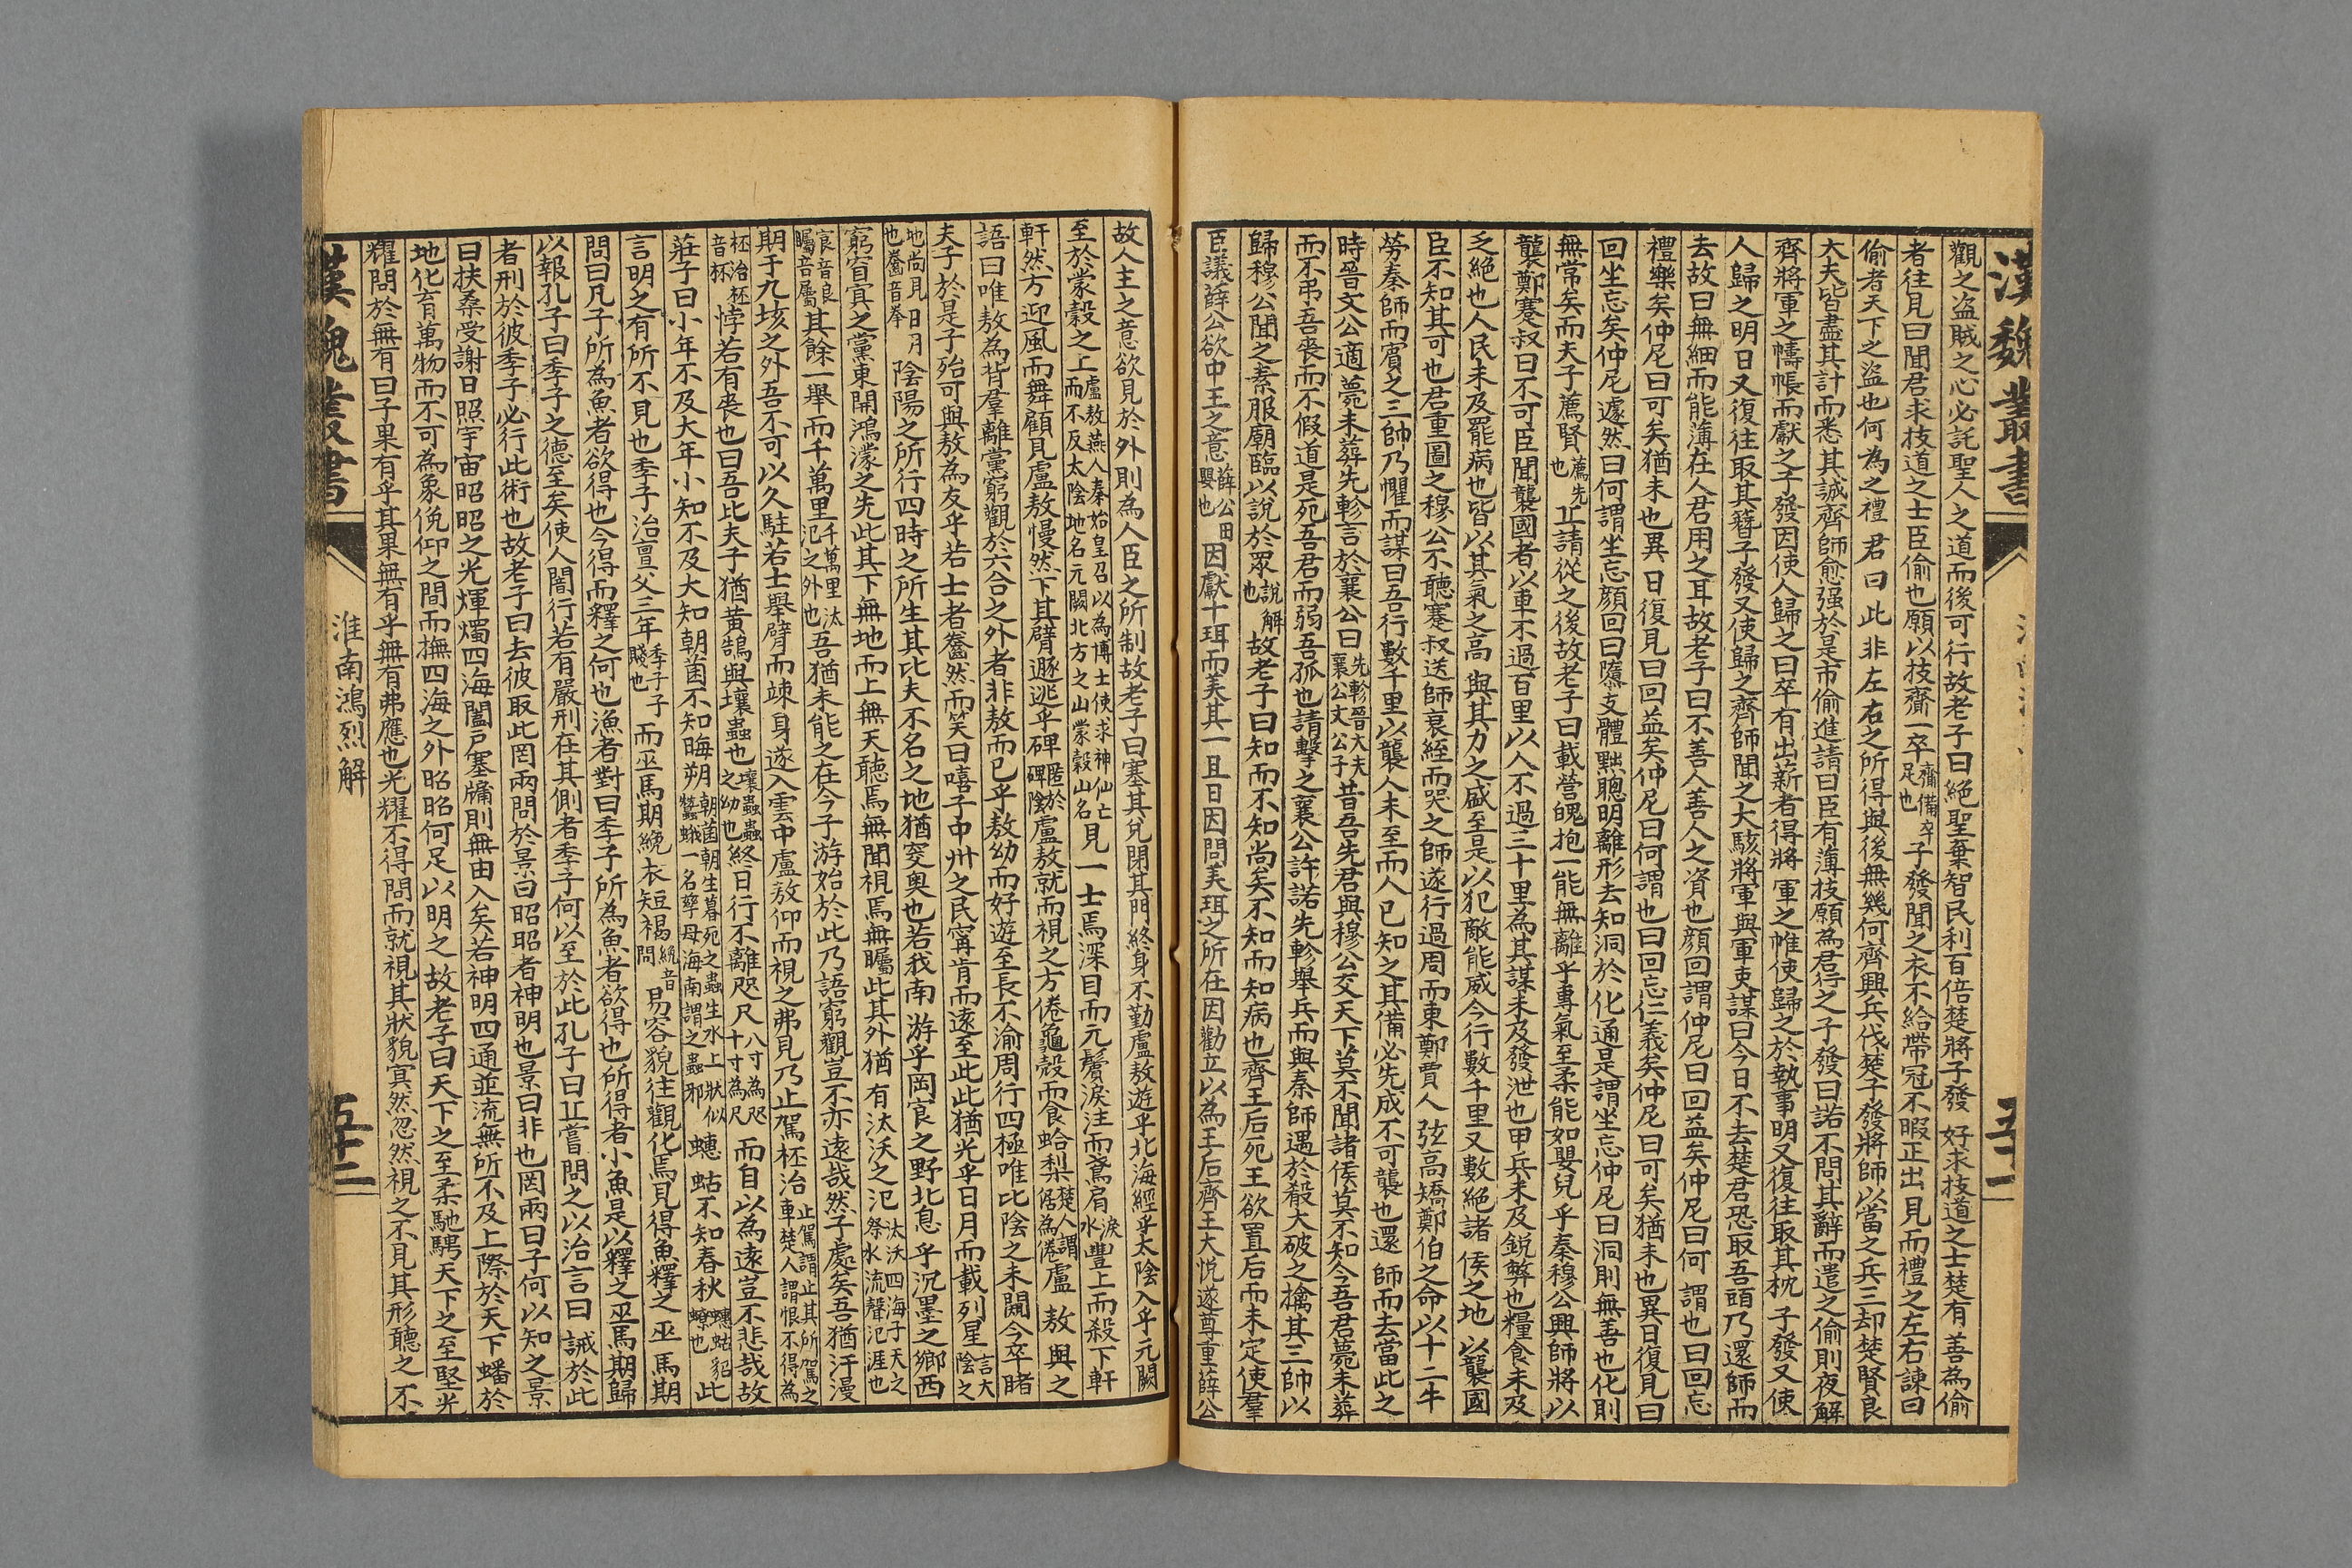 漢魏叢書
五十一
觀之盜賊之心必託聖人之道而後可行故老子曰絕聖棄智民利百倍楚將子發好求技道之士楚有善為偷
者往見曰聞君求技道之士臣偷也願以技齎一卒齎備卒足也子發聞之衣不給帶冠不暇正出見而禮之左右諫曰
偷者天下之盜也何為之禮君曰此非左右之所得與後無幾何齊興兵伐楚子發將師以當之兵三却楚賢良
大夫皆盡其計而悉其誠齊師愈强於是市偷進請曰臣有薄技願為君行之子發曰諾不問其辭而遣之偷則夜解
齊將軍之幬帳而獻之子發因使人歸之曰卒有出薪者得將軍之帷使歸之於執事明又復往取其枕子發又使
人歸之明日又復往取其簪子發又使歸之齊師聞之大駭將軍與軍吏謀曰今日不去楚君恐取吾頭乃還師而
去故曰無細而能薄在人君用之耳故老子曰不善人善人之資也顏回謂仲尼曰回益矣仲尼曰何謂也曰回忘
禮樂矣仲尼曰可矣猶未也異日復見曰回益矣仲尼曰何謂也曰回忘仁義矣仲尼曰可矣猶未也異日復見曰
回坐忘矣仲尼遽然曰何謂坐忘顏回曰隳支體黜聰明離形去知洞於化通是謂坐忘仲尼曰洞則無善也化則
無常矣而夫子薦賢薦先也丘請從之後故老子曰載營魄抱一能無離乎專氣至柔能如嬰兒乎秦穆公興師將以
襲鄭蹇叔曰不可臣聞襲國者以車不過百里以人不過三十里為其謀未及發泄也甲兵未及銳弊也糧食未及
乏絕也人民未及罷病也皆以其氣之高與其力之盛至是以犯敵能威今行數千里又數絕諸侯之地以襲國
臣不知其可也君重圖之穆公不聽蹇叔送師衰絰而哭之師遂行過周而東鄭賈人弦高矯鄭伯之命以十二牛
勞秦師而賓之三帥乃懼而謀曰吾行數千里以襲人未至而人已知之其備必先成不可襲也還師而去當此之
時晉文公適薨未葬先軫言於襄公曰先軫晉大夫襄公文公子昔吾先君與穆公交天下莫不聞諸侯莫不知今吾君薨未葬
而不弔吾喪而不假道是死吾君而弱吾孤也請擊之襄公許諾先軫舉兵而與秦師遇於殽大破之擒其三帥以
歸穆公聞之素服廟臨以說於眾說解也故老子曰知而不知尚矣不知而知病也齊王后死王欲置后而未定使羣
臣議薛公欲中王之意薛公田嬰也因獻十珥而美其一旦日因問美珥之所在因勸立以為王后齊王大悅遂尊重薛公
故人主之意欲見於外則為人臣之所制故老子曰塞其兌閉其門終身不勤盧敖遊乎北海經乎太陰入乎元闕
至於蒙穀之上盧敖燕人秦始皇召以為博士使求神仙亡而不反太陰地名元闕北方之山蒙穀山名見一士焉深目而元鬢淚注而鳶肩淚水豐上而殺下軒
軒然方迎風而舞顧見盧敖慢然下其臂遯逃乎碑匿於碑陰盧敖就而視之方倦龜殼而食蛤梨楚人謂倨為倦盧敖與之
語曰唯敖為背羣離黨窮觀於六合之外者非敖而已乎敖幼而好遊至長不渝周行四極唯比陰之未闚今卒睹
夫子於是子殆可與敖為友乎若士者齤然而笑曰嘻子中州之民寧肯而遠至此此猶光乎日月而載列星言大陰之
地尚見日月也齤音拳陰陽之所行四時之所生其比夫不名之地猶窔奧也若我南游乎岡㝗之野北息乎沉墨之鄉西
窮窅冥之黨東開鴻濛之先此其下無地而上無天聽焉無聞視焉無矚此其外猶有汰沃之汜汰沃四海于天之祭水流聲汜涯也
㝗音良矚音屬其餘一舉而千萬里千萬里汰汜之外也吾猶未能之在今子游始於此乃語窮觀豈不亦遠哉然子處矣吾猶汗漫
期于九垓之外吾不可以久駐若士舉臂而竦身遂入雲中盧敖仰而視之弗見乃止駕杯治止駕謂止其所駕之車楚人謂恨不得為
杯治杯音杯悖若有喪也曰吾比夫子猶黃鵠與壤蟲也壤蟲蟲之幼也終日行不離咫尺八寸為咫十寸為尺而自以為遠豈不悲哉故
莊子曰小年不及大年小知不及大知朝菌不知晦朔朝菌朝生暮死之蟲生水上狀似蠶蛾一名孳母海南謂之蟲邪蟪蛄不知春秋蟪蛄貂蟟也此
言明之有所不見也季子治亶父三年季子子賤也而巫馬期絻衣短褐絻音問易容貌往觀化焉見得魚釋之巫馬期
問曰凡子所為魚者欲得也今得而釋之何也漁者對曰季子所為魚者欲得也所得者小魚是以釋之巫馬期歸
以報孔子曰季子之德至矣使人闇行若有嚴刑在其側者季子何以至於此孔子曰丘嘗問之以治言曰誡於此
者刑於彼季子必行此術也故老子曰去彼取此罔兩問於景曰昭昭者神明也景曰非也罔兩曰子何以知之景
曰扶桑受謝日照宇宙昭昭之光煇燭四海闔戶塞牖則無由入矣若神明四通並流無所不及上際於天下蟠於
地化育萬物而不可為象俛仰之間而撫四海之外昭昭何足以明之故老子曰天下之至柔馳騁天下之至堅光
耀問於無有曰子果有乎其果無有乎無有弗應也光耀不得問而就視其狀貌冥然忽然視之不見其形聽之不
漢魏叢書
淮南鴻烈解
五十二